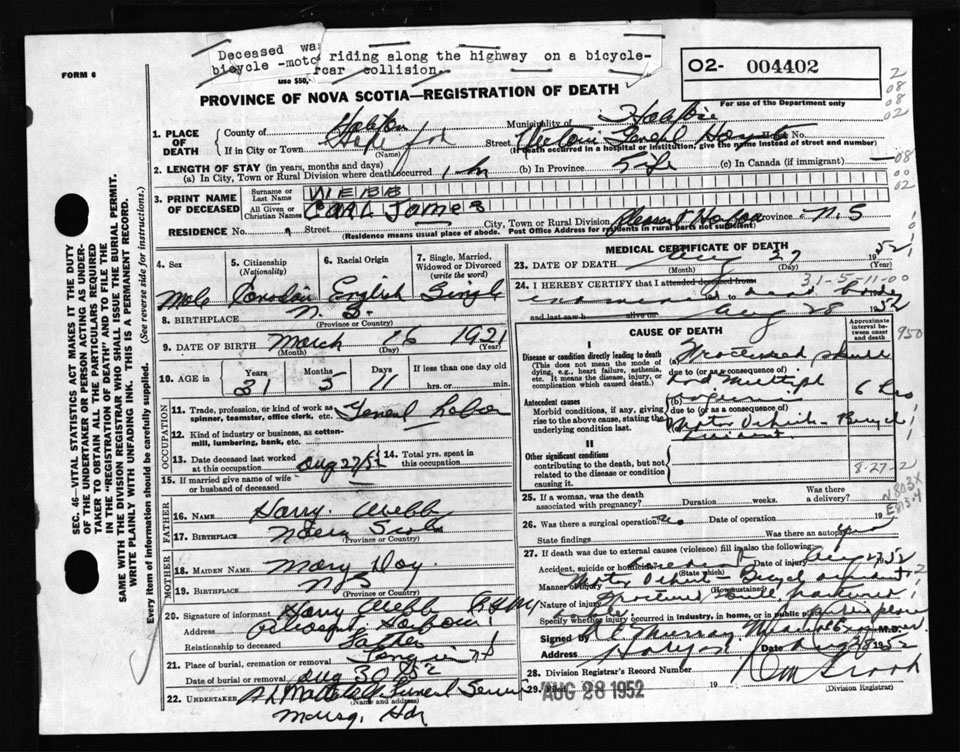 Deceased was riding along the highway on a bicycle-
bicycle -motorcar collision.
FORM 6
use 550,
O2- 004402
For use of the Department only
2
08
08
02
PROVINCE OF NOVA SCOTIA—REGISTRATION OF DEATH
1. PLACE OF DEATH
County of Halifax
Municipality of Halifax
If in City or Town
(Name)
Street Victoria General No.
(If death occurred in a hospital or institution, give the name instead of street and number)
2. LENGTH OF STAY (in years, months and days)
(a) In City, Town or Rural Division where death occurred
(b) In Province Life
(c) In Canada (if immigrant) —
08
00
02
3. PRINT NAME OF DECEASED
Surname or Last Name WEBB
All Given or Christian Names CARL James
RESIDENCE No.
Street
City, Town or Rural Division Pleasant Harbor
Province N.S
(Residence means usual place of abode. Post Office Address for residents in rural parts not sufficient)
4. Sex
Male
5. Citizenship (Nationality)
Canadian
6. Racial Origin
English
7. Single, Married, Widowed or Divorced (write the word)
Single
8. BIRTHPLACE N.S.
(Province or Country)
9. DATE OF BIRTH March 16 1921
(Month) (Day) (Year)
10. AGE in
Years 31
Months 5
Days 11
If less than one day old
hrs. or min.
OCCUPATION
11. Trade, profession, or kind of work as spinner, teamster, office clerk, etc. General Labor
12. Kind of industry or business, as cotton-mill, lumbering, bank, etc.
13. Date deceased last worked at this occupation Aug 27/52
14. Total yrs. spent in this occupation
15. If married give name of wife or husband of deceased
FATHER
16. NAME Harry Webb
17. BIRTHPLACE Nova Scotia
(Province or Country)
MOTHER
18. MAIDEN NAME Mary Day.
19. BIRTHPLACE N.S
(Province or Country)
20. Signature of informant Harry Webb
Address Pleasant Harbour
Relationship to deceased Father
21. Place of burial, cremation or removal Tangier N.S
Date of burial or removal Aug 30 52
22. UNDERTAKER Funeral Service
(Name and address)
Musq. Har
MEDICAL CERTIFICATE OF DEATH
23. DATE OF DEATH Aug 27 1952
(Month) (Day) (Year)
24. I HEREBY CERTIFY that I attended deceased from
31-5-11-00
examined dead body
and last saw h alive on Aug 28 1952
CAUSE OF DEATH
Approximate interval between onset and death
950
I
Disease or condition directly leading to death
(This does not mean the mode of dying, e.g., heart failure, asthenia, etc. It means the disease, injury, or complication which caused death.)
(a) Fractured skull
due to (or as a consequence of)
and multiple
injuries
6 hrs
Antecedent causes
Morbid conditions, if any, giving rise to the above cause, stating the underlying condition last.
due to (or as a consequence of)
Motor Vehicle - Bicycle
accident
II
Other significant conditions
contributing to the death, but not related to the disease or condition causing it.
8-27-2
N803X
25. If a woman, was the death associated with pregnancy?
Duration weeks.
Was there a delivery?
26. Was there a surgical operation? No
Date of operation 19
State findings
Was there an autopsy
27. If death was due to external causes (violence) fill in also the following:
Accident, suicide or homicide accident
(State which)
Date of injury Aug 27 52
Manner of injury Motor Vehicle - Bicycle accident
(How sustained)
Nature of injury Fractured skull
Specify whether injury occurred in industry, in home, or in public place
public place
Signed by Murray M.D.
Address Halifax
Date Aug 28 1952
28. Division Registrar's Record Number
29. Filed AUG 28 1952 19
(Division Registrar)
SEC. 46—VITAL STATISTICS ACT MAKES IT THE DUTY OF THE UNDERTAKER OR PERSON ACTING AS UNDERTAKER TO OBTAIN ALL THE PARTICULARS REQUIRED IN THE "REGISTRATION OF DEATH" AND TO FILE THE SAME WITH THE DIVISION REGISTRAR WHO SHALL ISSUE THE BURIAL PERMIT.
WRITE PLAINLY WITH UNFADING INK. THIS IS A PERMANENT RECORD.
Every item of information should be carefully supplied. (See reverse side for instructions.)